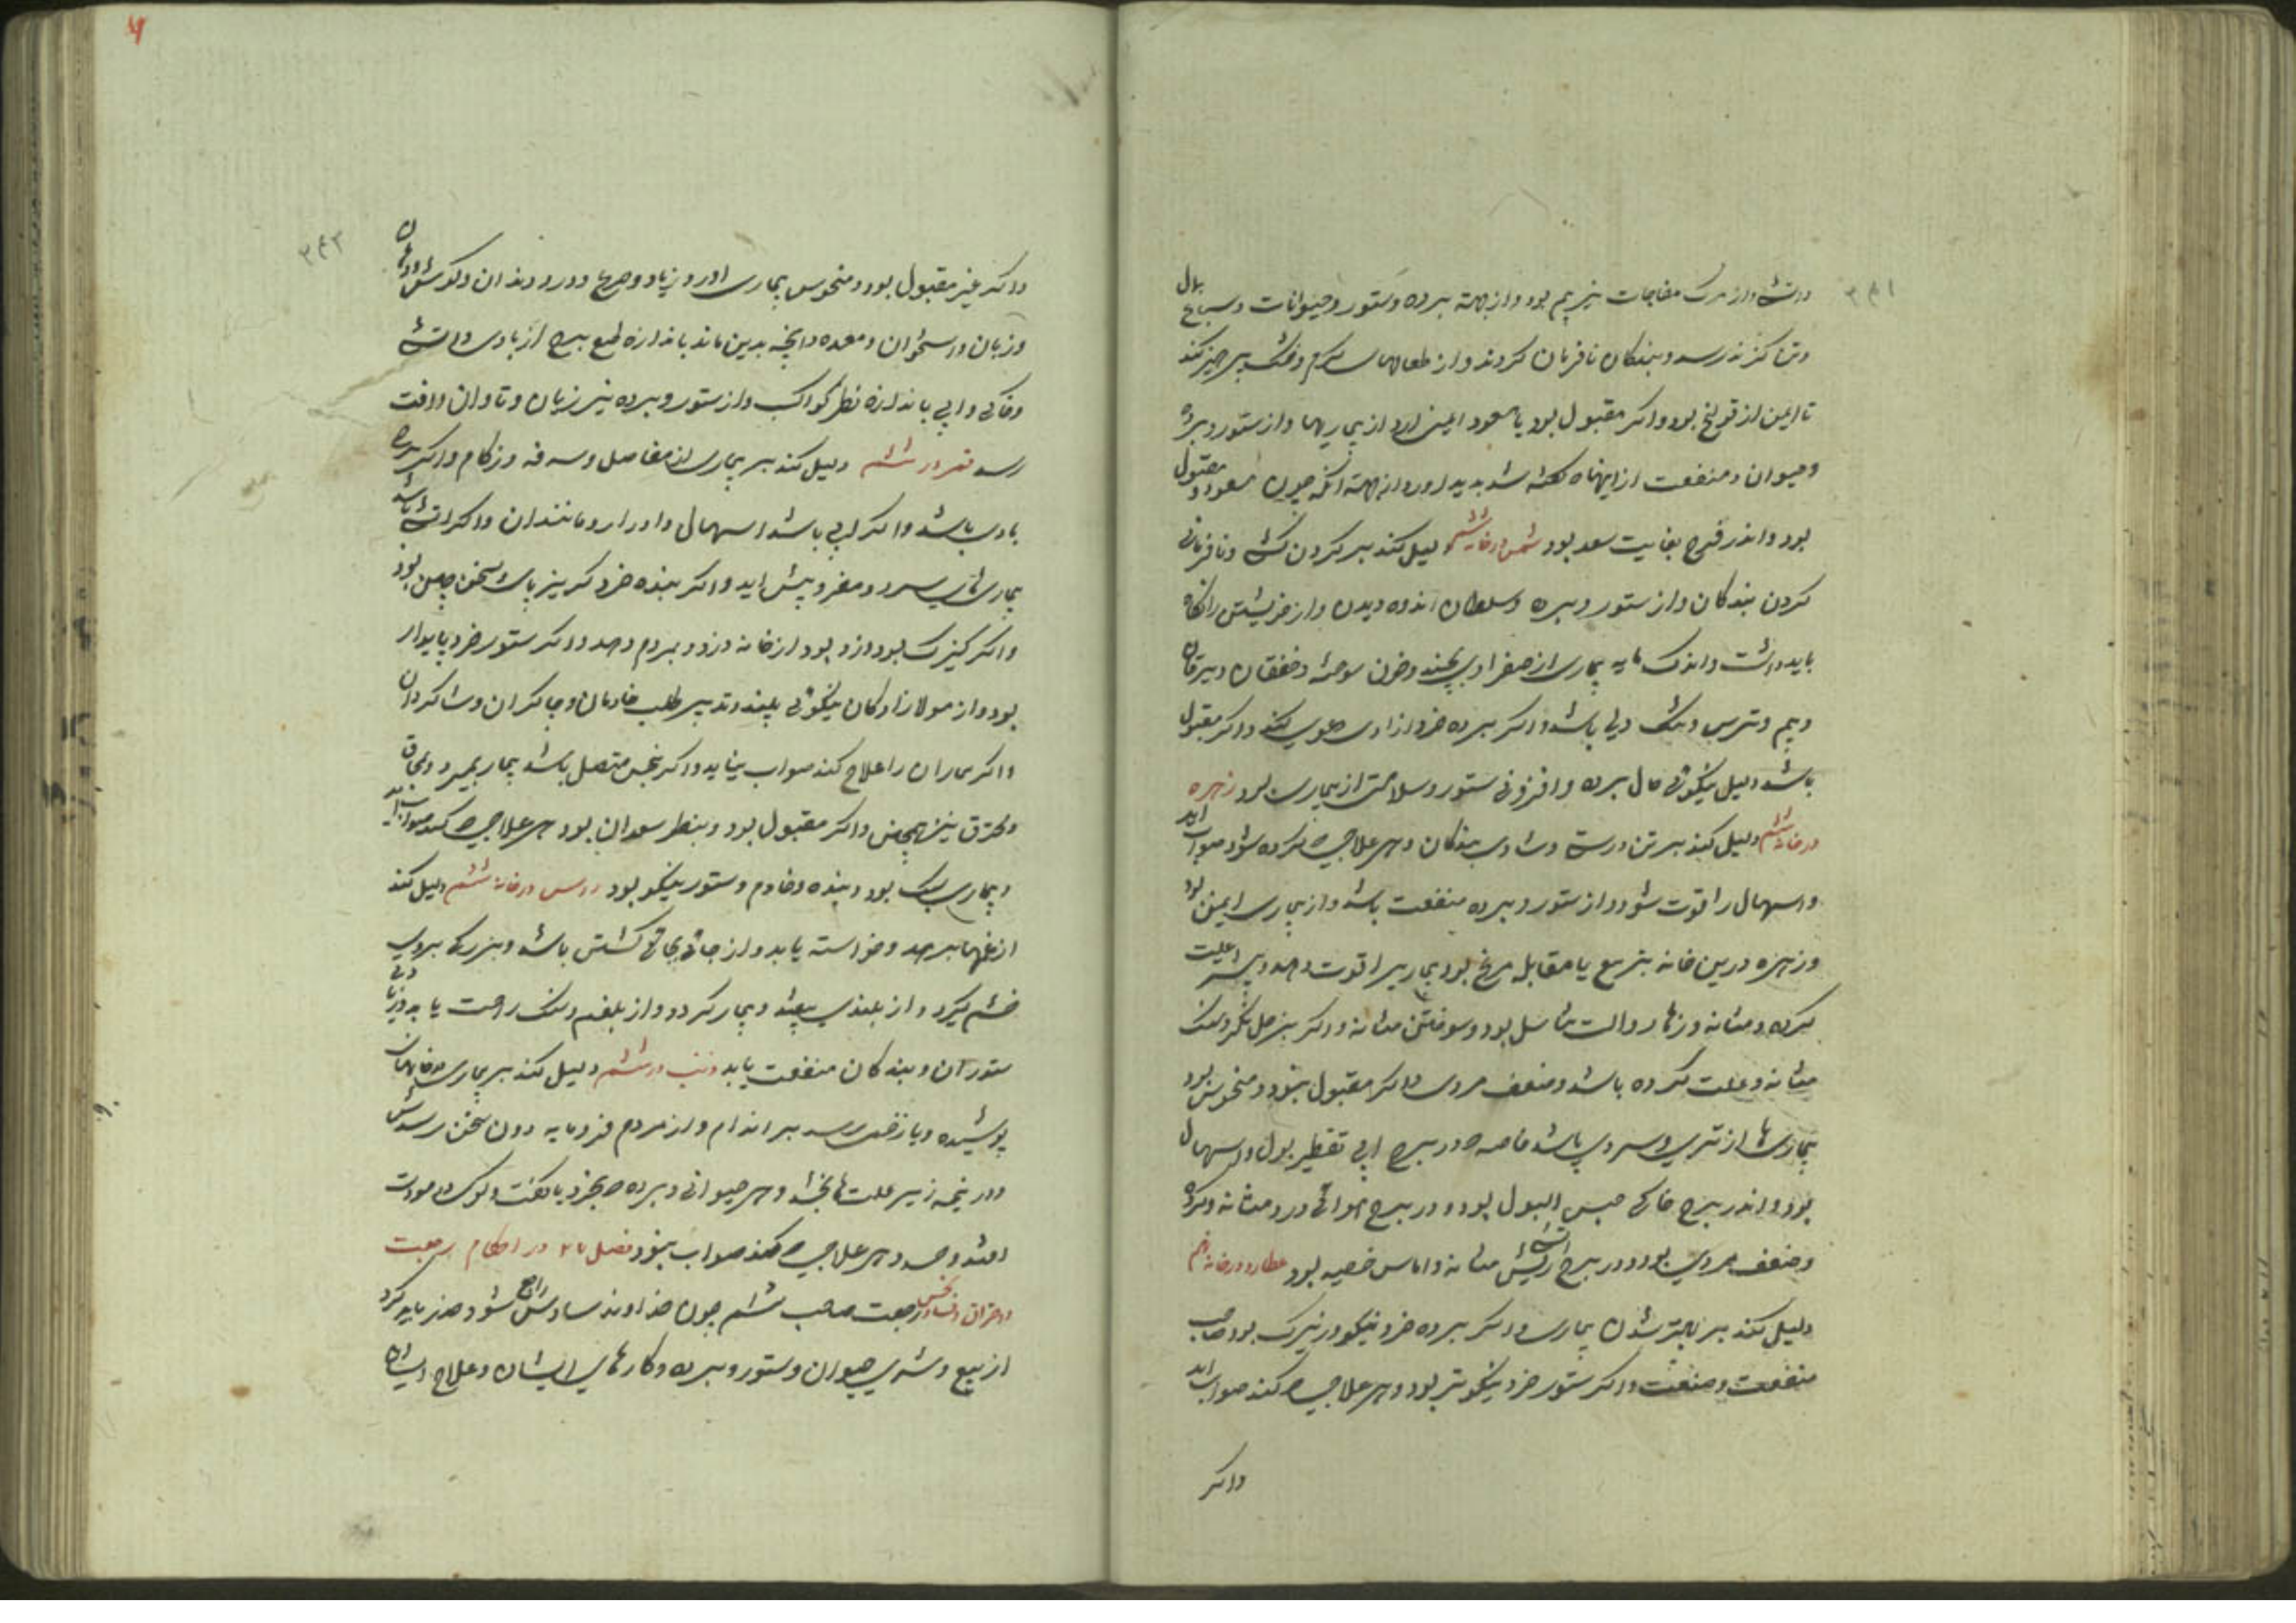 و آتش و از مرک مفاجات نیز بیم بود و از جهة برده و ستور و حیوانات و سباع
و تنا کزند رسد و بندکان نافرمان کردند و از طعامهاء کرم و خشک پرهیز کند
تا ایمن از قولنج بود و اکر مقبول بود یا مسعود ایمنی ارد از بیماریها و از ستور و برده
و حیوان و منفعت از اینها که کفته شد پدید اورد از جهة انکه چون مسعود و مقبول
بود و اندر فرح بغایت سعد بود شمس در خانه ششم دلیل کند بر کردن کشی و نافرمانی
کردن بندکان و از ستور و برده و سلطان اندوه دیدن و از خویشتن را نکاه
باید داشت و اندک مایه بیماری از صفرا و خون سوخته و خفقان و یرقان
و بیم و ترس و تنک دلی باشد و اکر برده خرد ازادی دعوی کند و اکر مقبول
باشد دلیل نیکوئی حال برده و افزونی ستور و سلامتی از بیماری بود زهره
در خانه ششم دلیل کند بر تن درستی و شادی بندکان و هر علاجی که کرده شود صواب اید
و اسهال را قوت شود و از ستور و برده منفعت باشد و از بیماری ایمن بود
و زهره درین خانه بتربیع یا مقابله مریخ بود بیماری را قوت دهد و بیشتر علت
کرده و مثانه و زهار و الت تناسل بود و سوختن مثانه و اکر بزحل نکرد سنک
مثانه و علت کرده باشد و ضعف مردی و اکر مقبول نبود و منحوس بود
بیماری ها از تری و سردی باشد خاصه در برج ابی تقطیر بول و اسهال
بود و اندر برج خاکی حبس البول بود و در برج هوائی درد مثانه و کرده
و ضعف مردی بود و در برج اتشی ریش مثانه و اماس خصیه بود عطارد در خانه ششم
دلیل کند بر بهتر شدن بیماری و اکر برده خرد نیکو و زیرک بود صاحب
منفعت و صنعت و اکر ستور خرد نیکوتر بود و هر علاجی که کند صواب اید
و اکر
و اکر غیر مقبول بود و منحوس بیماری اورد زیاد و صرع و درد دندان و کوش و دهان
و زبان و استخوان و معده و انچه بدین ماند باندازه طبع برج از بادی و اتشی
و خاکی و ابی باندازه نظر کواکب و از ستور و برده نیز زیان و تاوان و افت
رسد قمر در ششم دلیل کند بر بیماری از مفاصل و سرفه و زکام و اکر برج
بادی باشد و اکر ابی باشد اسهال و ادرار و مانند ان و اکر اتشی باشد
بیماری سرد و مغز پیش اید و اکر بنده خرد کریز پای سخن چین بود
و اکر کنیزک بود دزد بود از خانه دزدد و بمردم دهد و اکر ستور خرد پایدار
بود و از مولازادکان نیکوئی بیند و تدبیر طلب خادمان و چاکران و شاکردان
و اکر بیماران را علاج کند صواب نیاید و اکر بنحس متصل باشد بیمار بمیرد و محاق
و محترق نیز همچنین و اکر مقبول بود و بنظر سعدان بود هر علاجی که کند صواب اید
و بیماری سبک بود و بنده و خادم و ستور نیکو بود راس در خانه ششم دلیل کند
از غمها برهد و خواسته یابد و از جائی بجائی کشتن باشد و بزرکی بر وی
خشم کیرد و از بلندی بیفتد و بیمار کردد و از بلغم و سنک راحت یابد و از
ستوران و بندکان منفعت یابد ذنب در ششم دلیل کند بر بیماری
پوشیده و باز زخمی رسد بر اندام و از مردم فرومایه و دون سخن رسدش
و در نیمه زیر علت ها بخشد و هر حیوانی و برده که بخرد
افتد و هر علاجی که کند صواب نبود فصل ۲۷ در احکام رجعت
و احتراق و فساد و نحس رجعت صاحب ششم چون خداوند سادس راجع شود حذر باید کرد
از بیع و شری حیوان و ستور و برده و کارهای ایشان و علاج ایشان